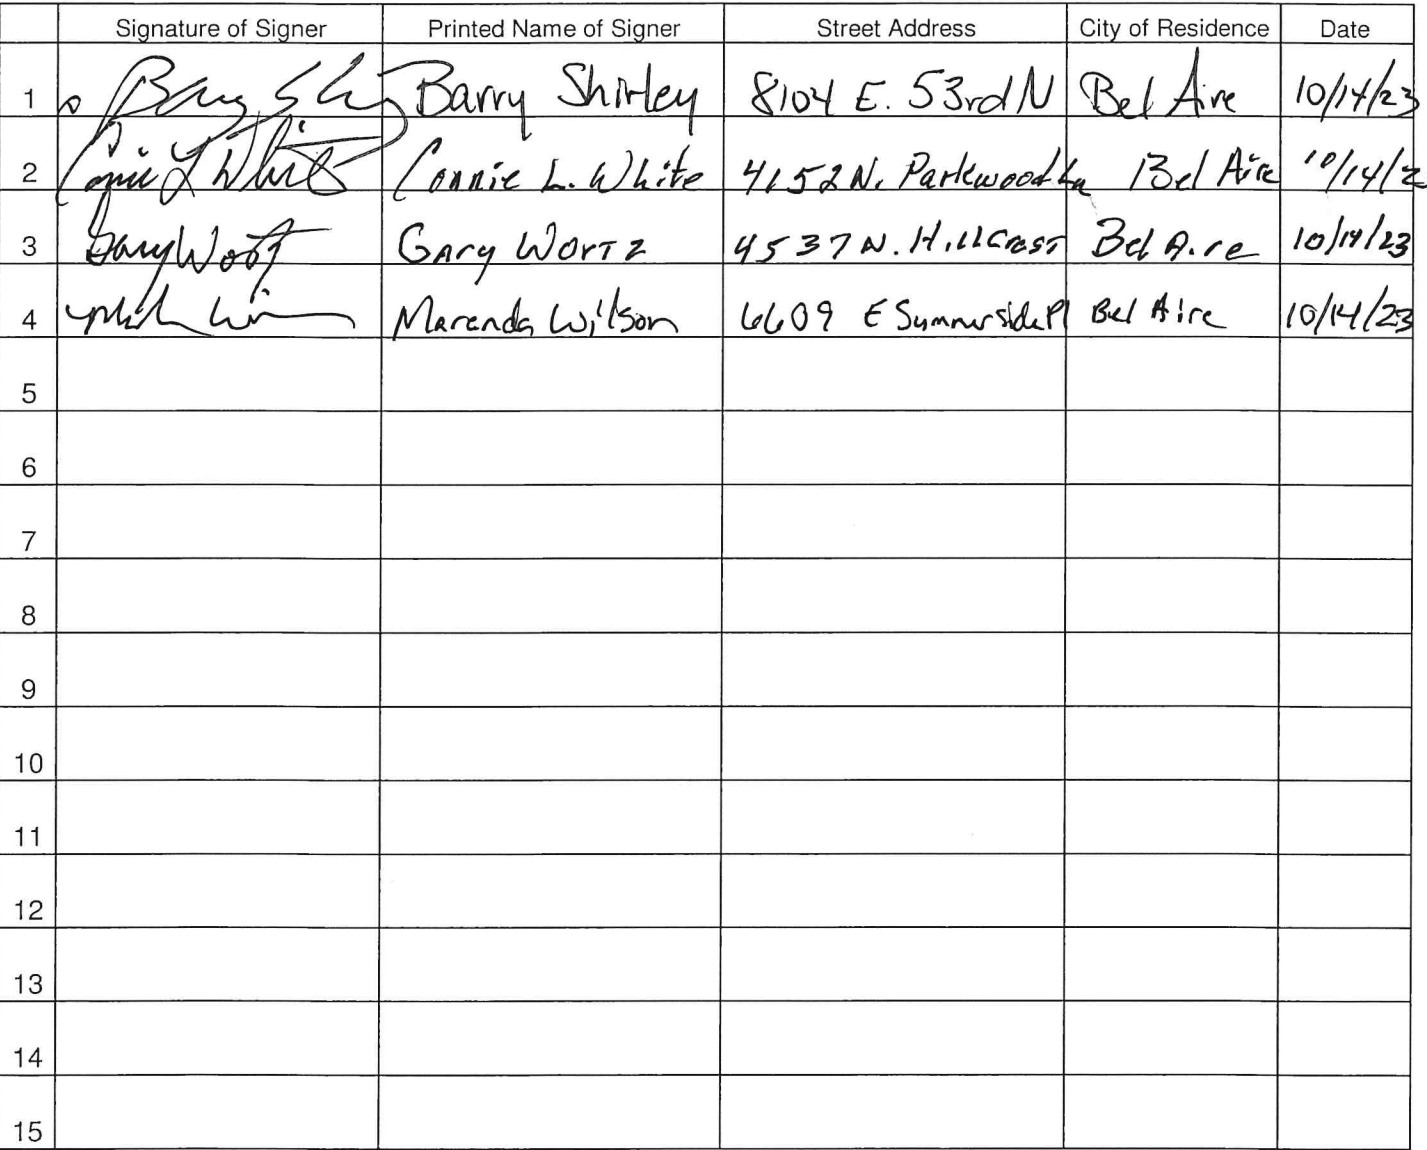 Signature of Signer Printed Name of Signer Street Address City of Residence Date
1 Barry Shirley 8104 E. 53rd N Bel Aire 10/14/23
2 Connie L White Connie L. White 4152 N. Parkwood Ln Bel Aire 10/14/2
3 Gary Wortz Gary Wortz 4537 N. Hillcrest Bel Aire 10/14/23
4 Marenda Willson 6609 E Summerside Pl Bel Aire 10/14/23
5
6
7
8
9
10
11
12
13
14
15